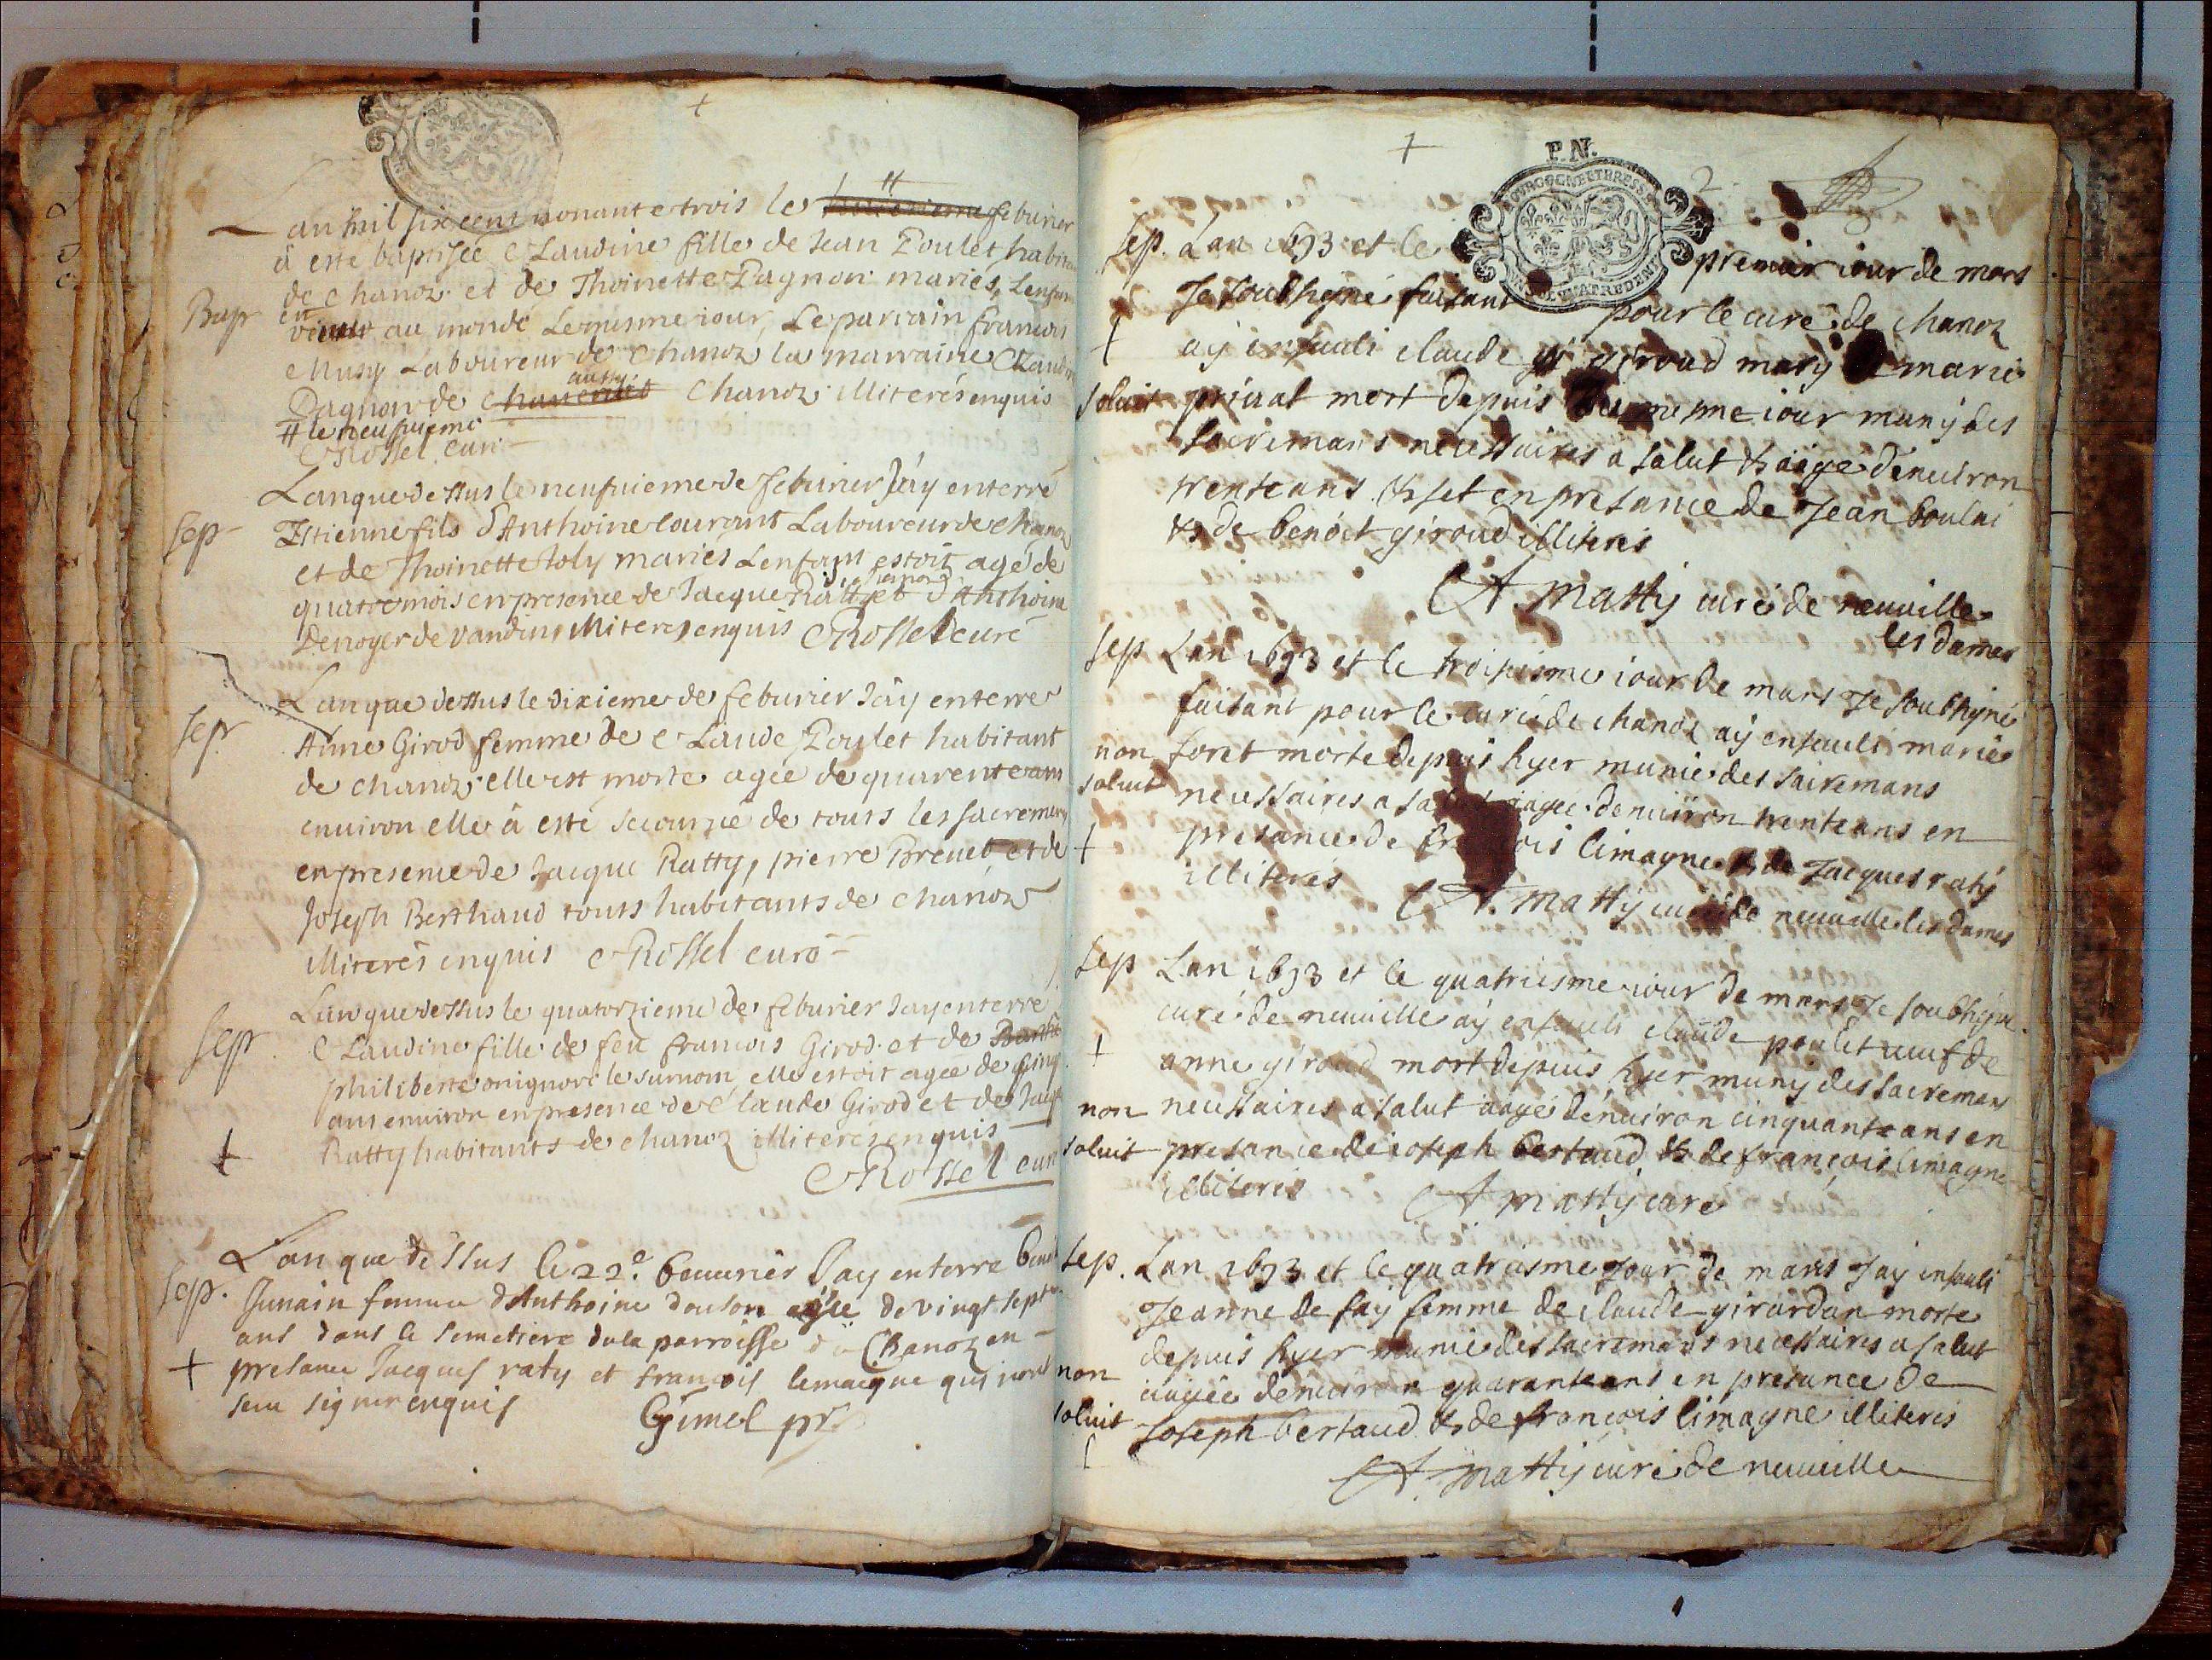 Lan mil six cent nonante trois le # feburier
à esté baptisée Claudine fille de Jean Poulet habitant
de Chanoz et de Thoinette Pagnon mariés, Lenfant
Bap venue au monde Le mesme iour, Le parrain francois
Musy Laboureur de Chanoz la marraine Claudine
aussy
Pagnon de Chanoz illiterés enquis
# le neufuieme
CRossel curé
Lan que dessus le neufuieme de feburier J'ay enterré
sep Estienne fils d'Anthoine Lourant Laboureur de Chanoz
et de Thoinette Joly mariés Lenfant estoit agé de
quatre mois en presence de Jacque Ratty et d'Anthoine
Denoyer de Vandins illiterés enquis CRossel curé
Lan que dessus le dixieme de feburier J'ay enterré
sep Anne Girod femme de Claude Poulet habitant
de Chanoz, elle est morte agée de quarente ans
enuiron elle à esté secourue de touts les sacremens
en presence de Jacque Ratty, pierre Breuet et de
Joseph Berthaud touts habitants de Chanoz
illiterés enquis CRossel curé
Lan que dessus le quatorzieme de feburier J'ay enterré
sep Claudine fille de feu francois Girod et de
philiberte on ignore le surnom, elle estoit agée de cinq
ans enuiron en presence de Claude Girod et de Jacque
+ Ratty habitants de Chanoz illiterés enquis
CRossel curé
Lan que dessus le 22e feuurier Jay enterré
sep. Junain femme d'Anthoine douson agée de vingt sept
ans dans le semetiere de la parroisse de Chanoz en
+ presance Jacques raty et francois lemaigne qui n'ont
seu signer enquis Gimel pr
+
P.N. 2
BOURGOGNE ET BRESSE
sep. Lan 1693 et le premier iour de mars
Je soubsigné faisant pour le curé de chanoz
+ ay enseueli claude giroud mary de marie
soluit priual mort depuis le mesme iour muny des
sacremans necessaires a salut & aagé denuiron
trente ans & set en presance de Jean boulai
& de benoit giroud illiterés
A. Matty curé de neuuille
les dames
sep Lan 1693 et le troisiesme iour de mars Je soubsigné
faisant pour le curé de chanoz ay enseueli marie
non foret morte depuis hyer munie des sacremans
soluit necessaires a salut aagée denuiron trente ans en
+ presance de francois limagne & de Jacques raty
illiterés A. Matty curé de neuuille les dames
sep Lan 1693 et le quatriesme iour de mars Je soubsigné
curé de neuuille ay enseueli claude poulet ueuf de
+ anne giroud mort depuis hyer muny des sacremans
non necessaires a salut aagé denuiron cinquante ans en
soluit presance de ioseph bertaud & de francois limagne
illiterés A Matty curé
sep. Lan 1693 et le quatriesme Jour de mars Jay enseueli
Jeanne de fay femme de claude girardan morte
depuis hyer munie des sacremans necessaires a salut
non aagée denuiron quarante ans en presance de
soluit Joseph bertaud & de francois limagne illiterés
A. Matty curé de neuuille